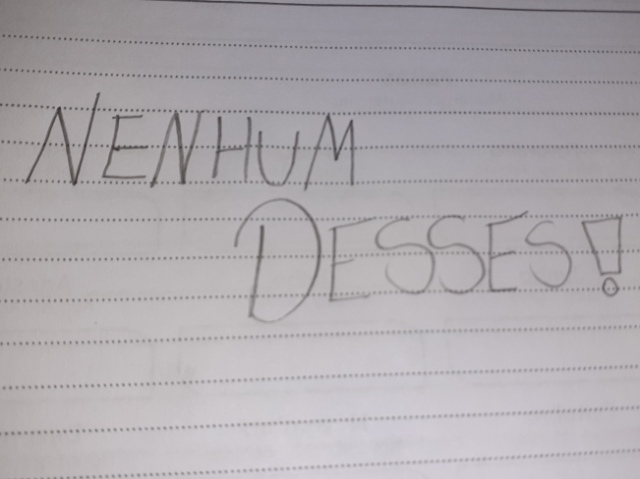 NENHUM
DESSES!